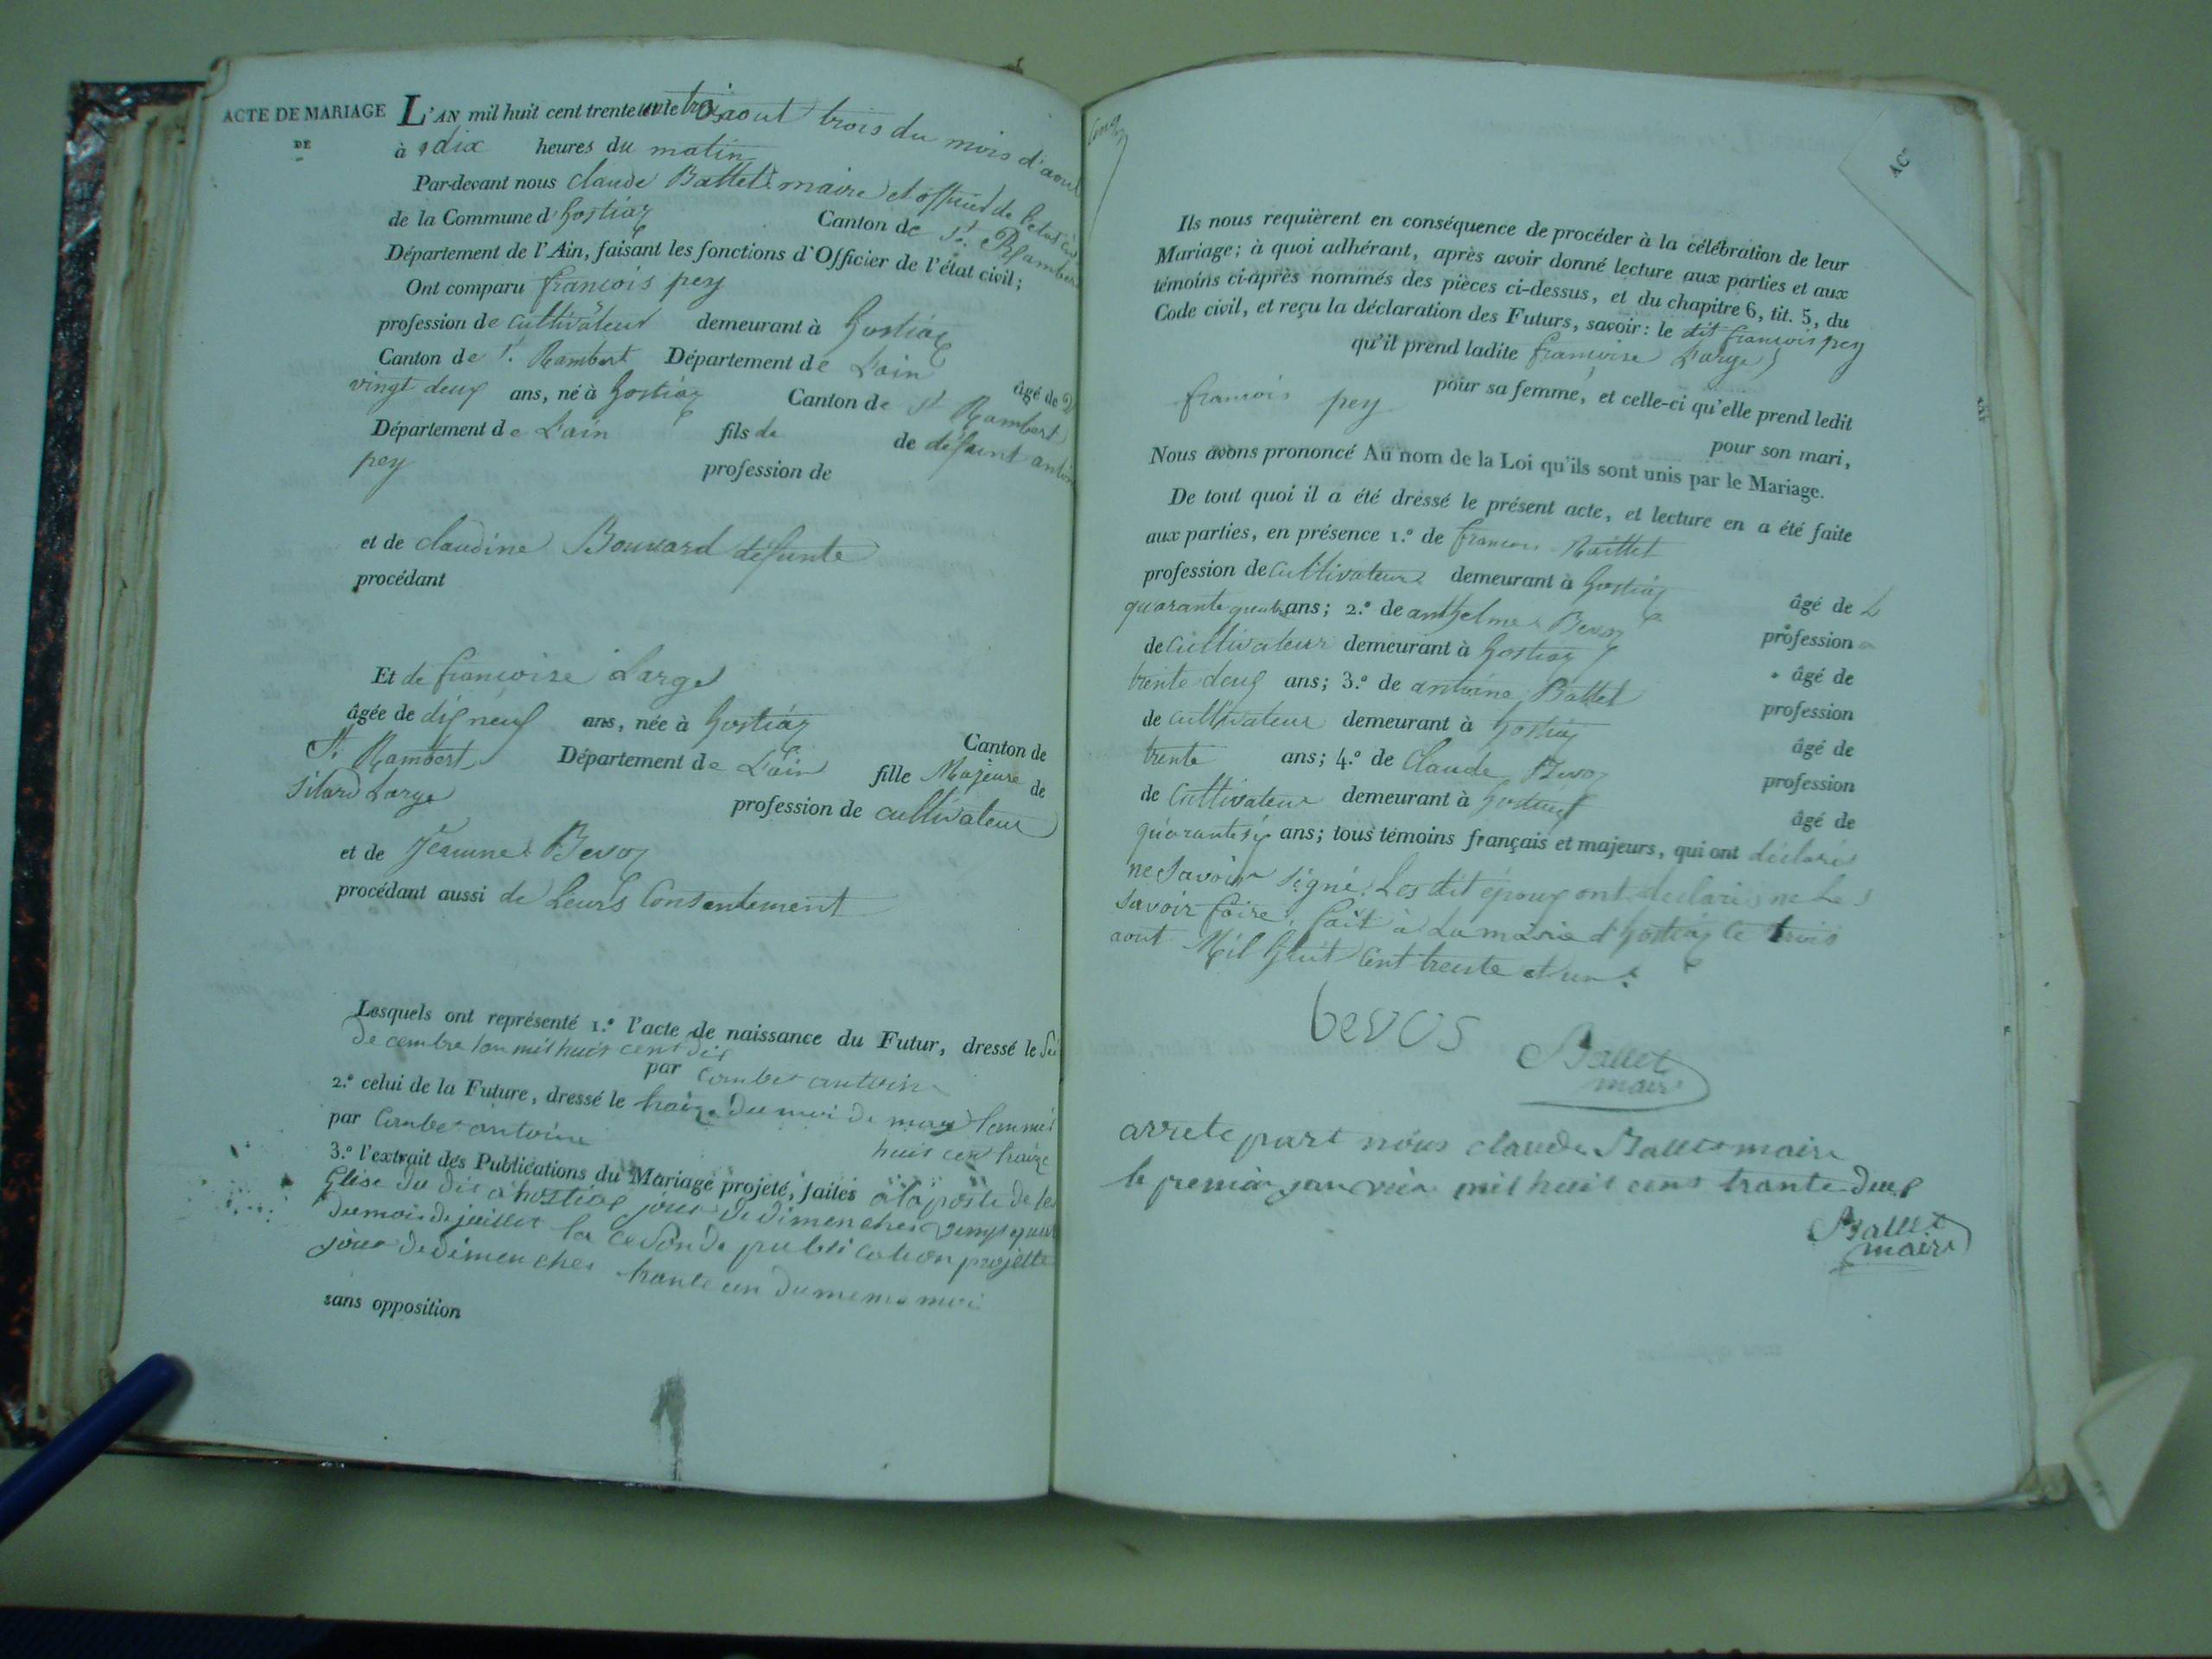 ACTE DE MARIAGE
DE
L'AN mil huit cent trente un le trois aout trois du mois d'aout
à dix heures du matin
Par-devant nous claude Ballet maire et officier de l'etat
de la Commune d'hostiaz Canton de St. Rambert
Département de l'Ain, faisant les fonctions d'Officier de l'état civil;
Ont comparu francois pey
profession de cultivateur demeurant à hostiaz
Canton de St. Rambert Département de L'ain âgé de
vingt deux ans, né à hostiaz Canton de St Rambert
Département de L'ain fils de de défunt
pey profession de
et de claudine Bouvard défunte
procédant
Et de francoise Large
âgée de dix neuf ans, née à hostiaz Canton de
St Rambert Département de L'ain fille Majeure de
Large profession de cultivateur
et de Jeanne Bevoz
procédant aussi de Leurs Consentement
Lesquels ont représenté 1.º l'acte de naissance du Futur, dressé le
decembre lan mil huit cent dix
par combet antoine
2.º celui de la Future, dressé le traize du moi de mars lan mil
par Combet antoine huit cen traize
3.º l'extrait des Publications du Mariage projeté, faites a la porte de
Glise du dit hostiaz jour de dimenches
du mois de juillet la seconde publication projette
jour de dimenches trante un du meme moi
sans opposition
Ils nous requièrent en conséquence de procéder à la célébration de leur
Mariage; à quoi adhérant, après avoir donné lecture aux parties et aux
témoins ci-après nommés des pièces ci-dessus, et du chapitre 6, tit. 5, du
Code civil, et reçu la déclaration des Futurs, savoir: le dit francois pey
qu'il prend ladite francoise Large
pour sa femme, et celle-ci qu'elle prend ledit
francois pey pour son mari,
Nous avons prononcé Au nom de la Loi qu'ils sont unis par le Mariage.
De tout quoi il a été dressé le présent acte, et lecture en a été faite
aux parties, en présence 1.º de francois
profession de Cultivateur demeurant à hostiaz âgé de
quarante ans; 2.º de anthelme Bevoz profession
de Cultivateur demeurant à hostiaz âgé de
trente deux ans; 3.º de antoine Ballet profession
de cultivateur demeurant à hostiaz âgé de
trente ans; 4.º de Claude Bevoz profession
de Cultivateur demeurant à hostiaz âgé de
quarante six ans; tous témoins français et majeurs, qui ont déclaré
ne Savoir Signé. Les dit époux ont declarés ne Le
savoir faire. fait à La mairie d'hostiaz le trois
aout Mil huit Cent trente et un.
bevos
Ballet
maire
arrete part nous claude Ballet maire
le premier janvier mil huit cent trante deux
Ballet
maire
AC